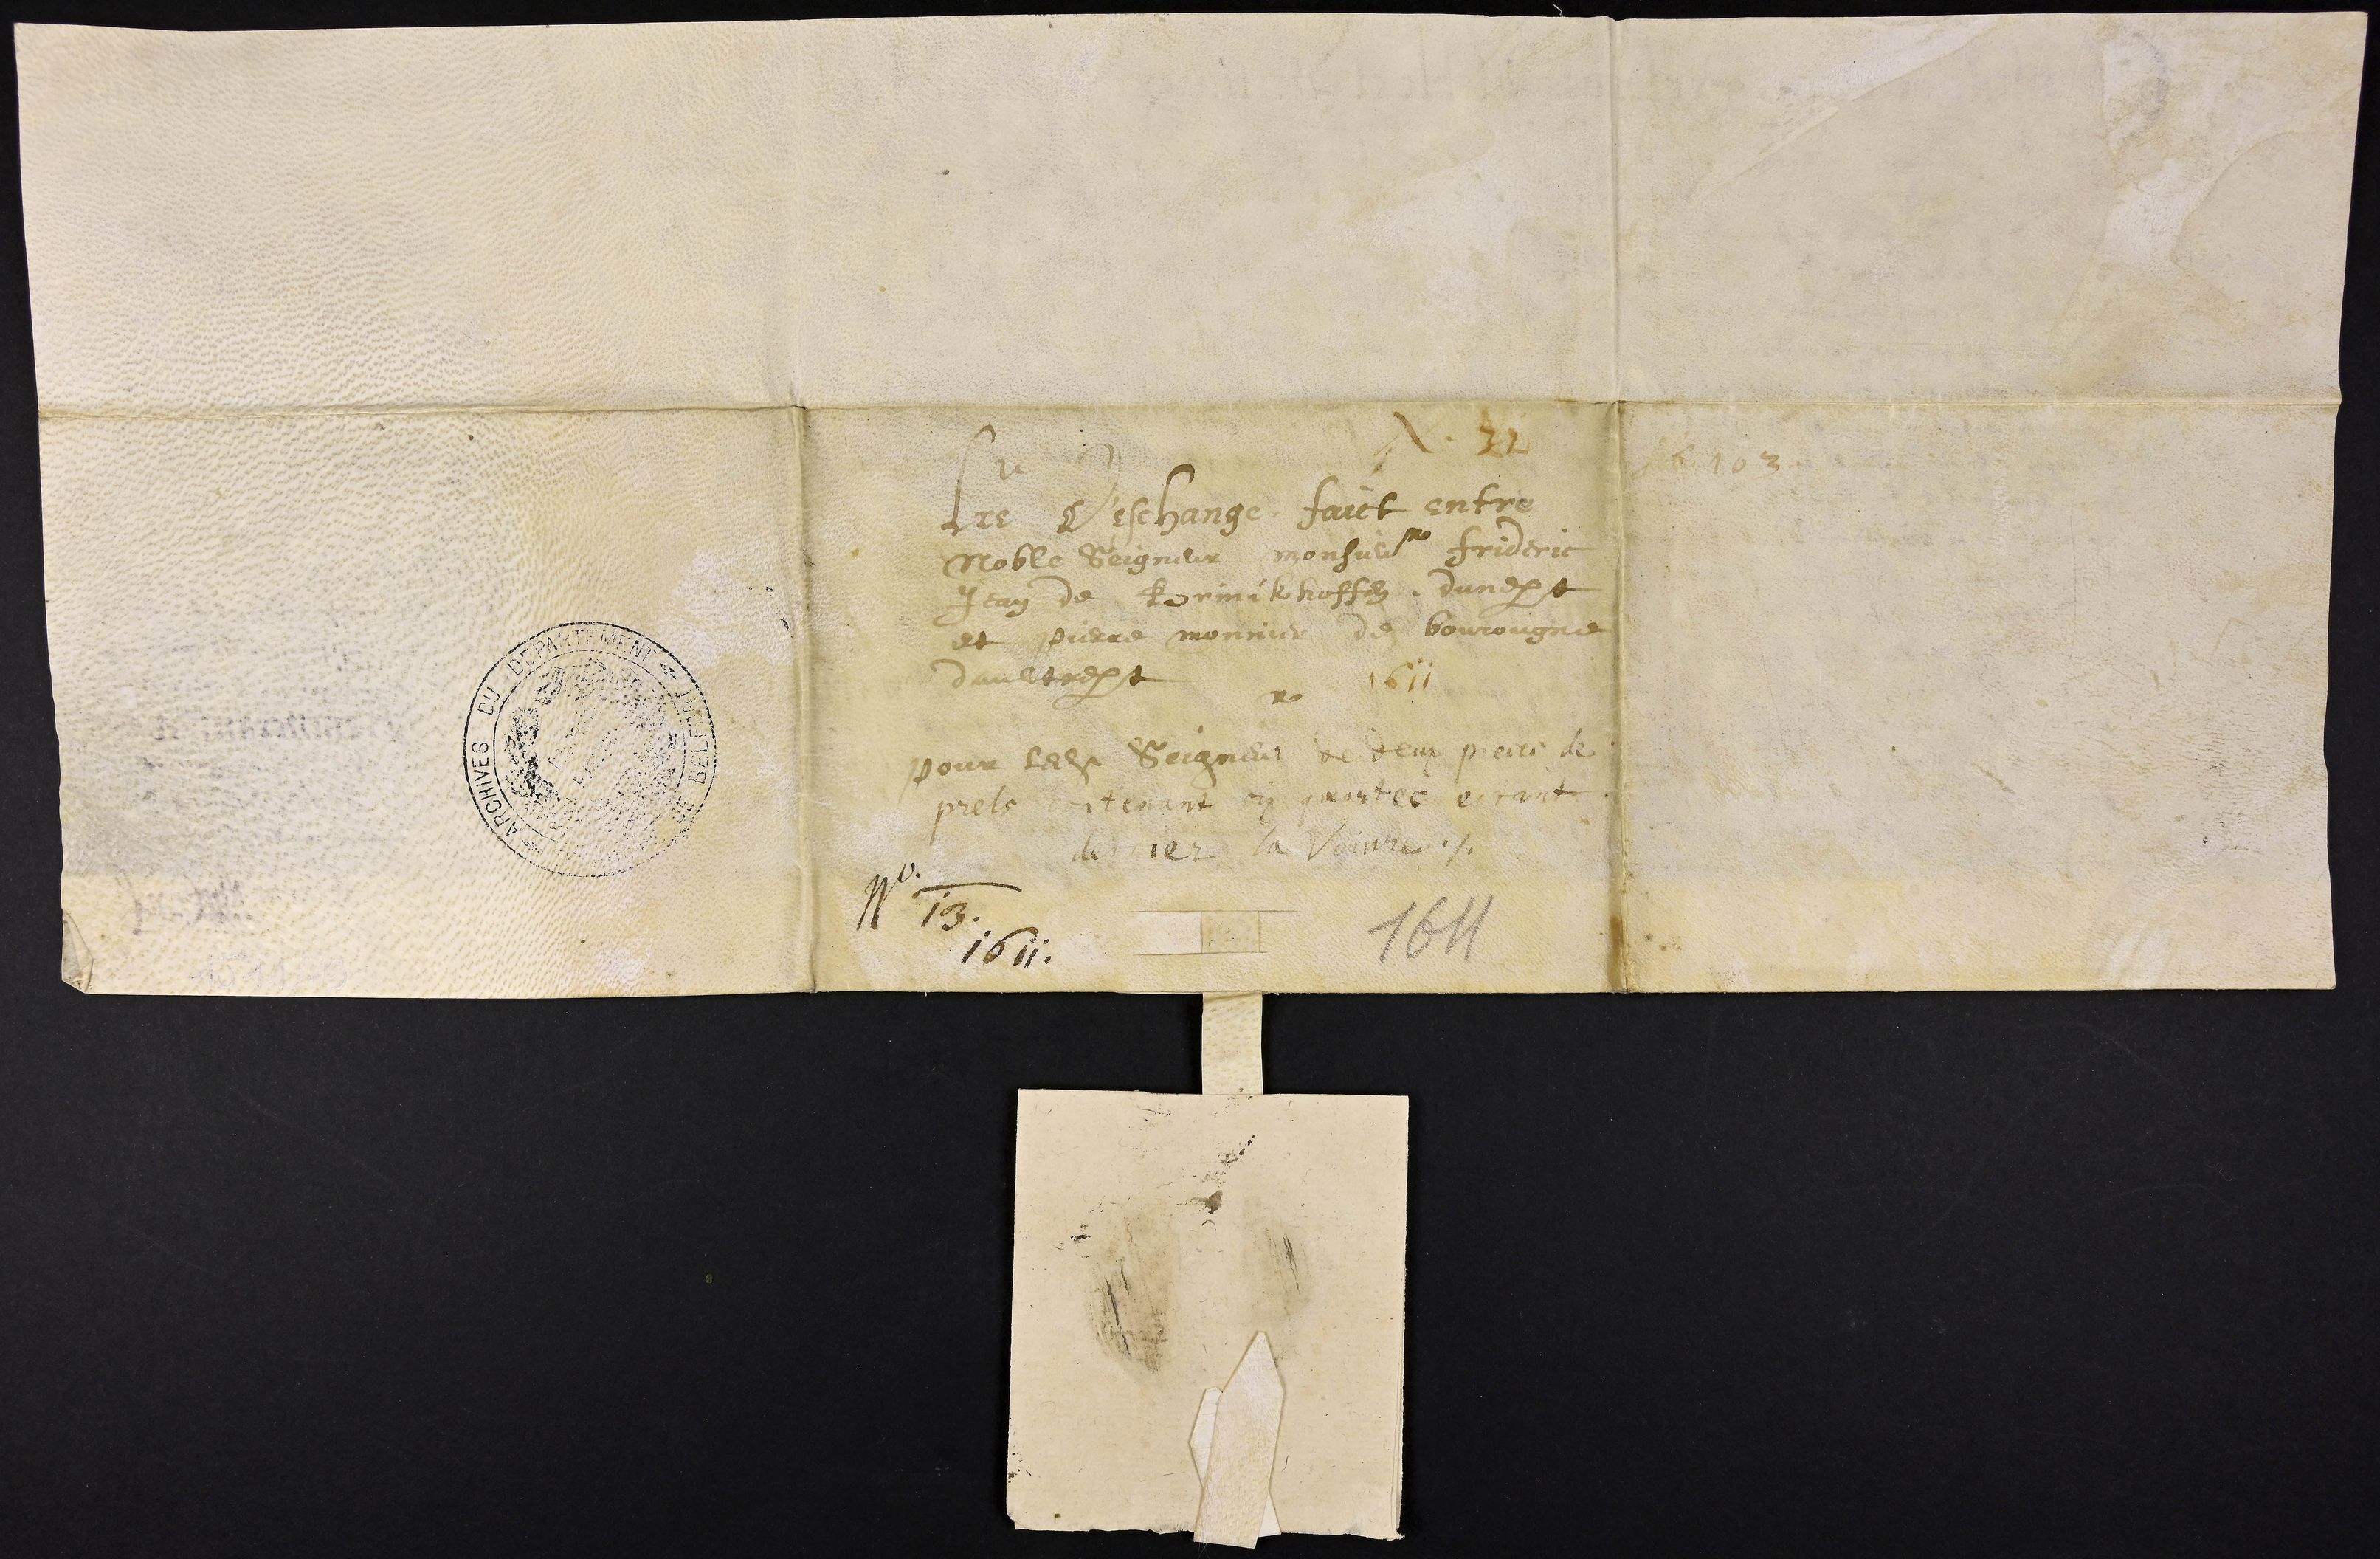 N. 32
Lre d'eschange faict entre
Noble Seigneur monsieur frideric
Jean de dunept
et pierre monnier de bourougne
daultrept 1611
pour Seigneur de deux pieces de
prels contenant quartes estant
derrier la Voivre ./.
N°. 13.
1611.
1611
103
ARCHIVES DU DEPARTEMENT DE BELFORT